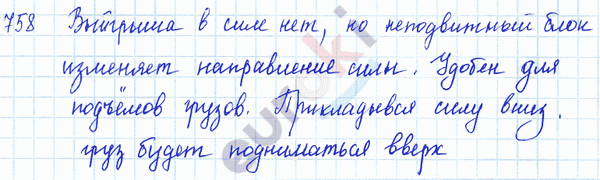 758 Выигрыша в силе нет, но неподвижный блок
изменяет направление силы. Удобен для
подъёмов грузов. Прикладывая силу вниз.
груз будет подниматься вверх